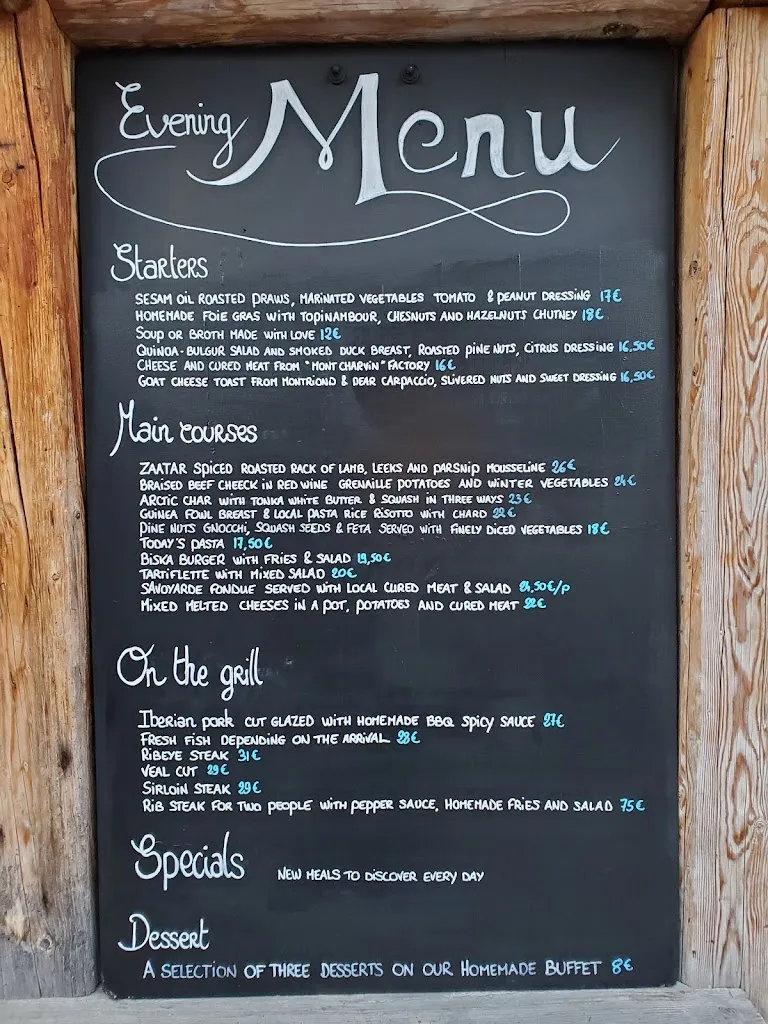 Evening Menu
Starters
SESAM OIL ROASTED PRAWS, MARINATED VEGETABLES TOMATO & PEANUT DRESSING 17€
HOMEMADE FOIE GRAS WITH TOPINAMBOUR, CHESNUTS AND HAZELNUTS CHUTNEY 18€
SOUP OR BROTH MADE WITH LOVE 12€
QUINOA-BULGUR SALAD AND SMOKED DUCK BREAST, ROASTED PINE NUTS, CITRUS DRESSING 16,50€
CHEESE AND CURED MEAT FROM "MONT CHARVIN" FACTORY 16€
GOAT CHEESE TOAST FROM MONTRIOND & DEAR CARPACCIO, SLIVERED NUTS AND SWEET DRESSING 16,50€
Main courses
ZAATAR SPICED ROASTED RACK OF LAMB, LEEKS AND PARSNIP MOUSSELINE 26€
BRAISED BEEF CHEECK IN RED WINE GRENAILLE POTATOES AND WINTER VEGETABLES 24€
ARCTIC CHAR WITH TONKA WHITE BUTTER & SQUASH IN THREE WAYS 23€
GUINEA FOWL BREAST & LOCAL PASTA RICE RISOTTO WITH CHARD 22€
PINE NUTS GNOCCHI, SQUASH SEEDS & FETA SERVED WITH FINELY DICED VEGETABLES 18€
TODAY'S PASTA 17,50€
BISKA BURGER WITH FRIES & SALAD 19,50€
TARTIFLETTE WITH MIXED SALAD 20€
SAVOYARDE FONDUE SERVED WITH LOCAL CURED MEAT & SALAD 24,50€/P
MIXED MELTED CHEESES IN A POT, POTATOES AND CURED MEAT 22€
On the grill
Iberian pork CUT GLAZED WITH HOMEMADE BBQ SPICY SAUCE 27€
FRESH FISH DEPENDING ON THE ARRIVAL 28€
RIBEYE STEAK 31€
VEAL CUT 29€
SIRLOIN STEAK 29€
RIB STEAK FOR TWO PEOPLE WITH PEPPER SAUCE, HOMEMADE FRIES AND SALAD 75€
Specials NEW MEALS TO DISCOVER EVERY DAY
Dessert
A SELECTION OF THREE DESSERTS ON OUR HOMEMADE BUFFET 8€